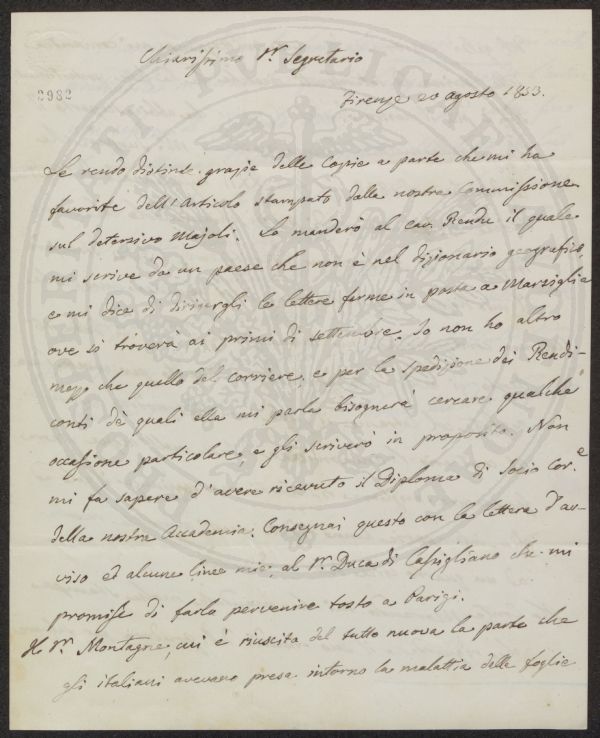 Chiarissimo Sr. Segretario
2982
Firenze 20 agosto 1853.
Le rendo distinte grazie delle Copie a parte che mi ha
favorite dell'Articolo stampato dalla nostra Commissione
sul detersivo Majoli. Lo manderò al cav. Rendu il quale
mi scrive da un paese che non è nel dizionario geografico,
e mi dice di dirigergli le lettere ferme in posta a Marsiglia
ove si troverà ai primi di settembre. Io non ho altro
mezzo che quello del corriere, e per la spedizione dei Rendi-
conti de quali ella mi parla bisognerà cercare qualche
occasione particolare, e gli scriverò in proposito. Non
mi fa sapere d'avere ricevuto il Diploma di Socio Cor.e
della nostra Accademia. Consegnai questo con la lettera d'av-
viso ed alcune linee mie, al Sr. Duca di Cassigliano che mi
promise di farlo pervenire tosto a Parigi.
Il Sr. Montagne, cui è riuscita del tutto nuova la parte che
gli italiani avevano presa intorno la malattia delle foglie